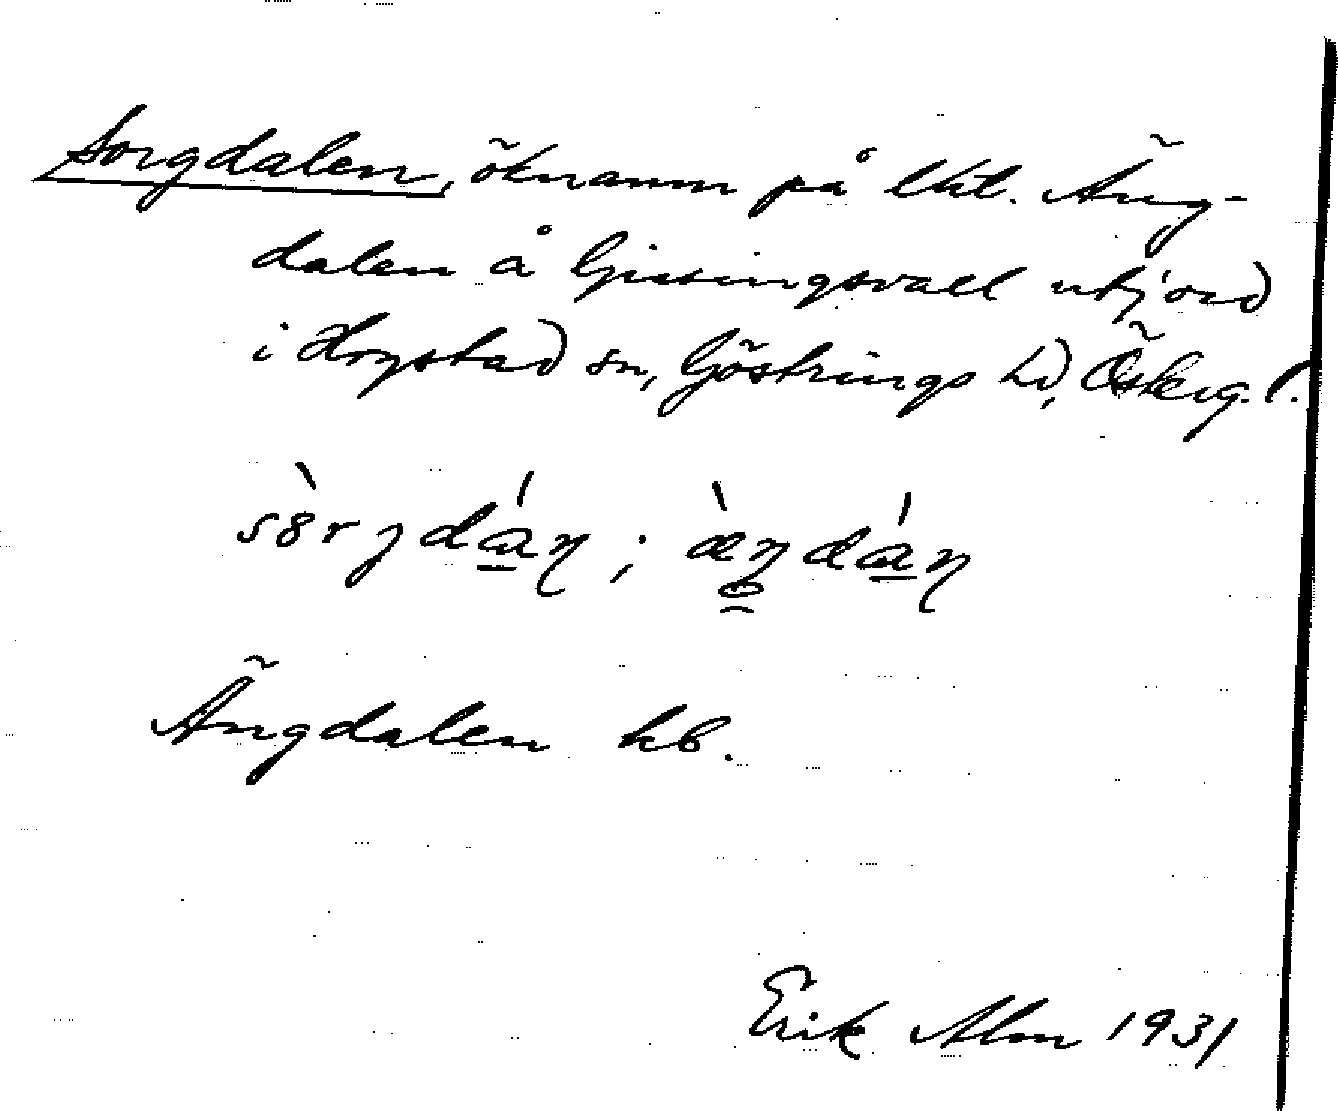 Sorgdalen, öknamn på lht. Äng-
dalen å Gissingsvall utjord
i Hogstad sn, Göstrings hd, Österg. l.
Ängdalen hb.
Erik Alm 1931